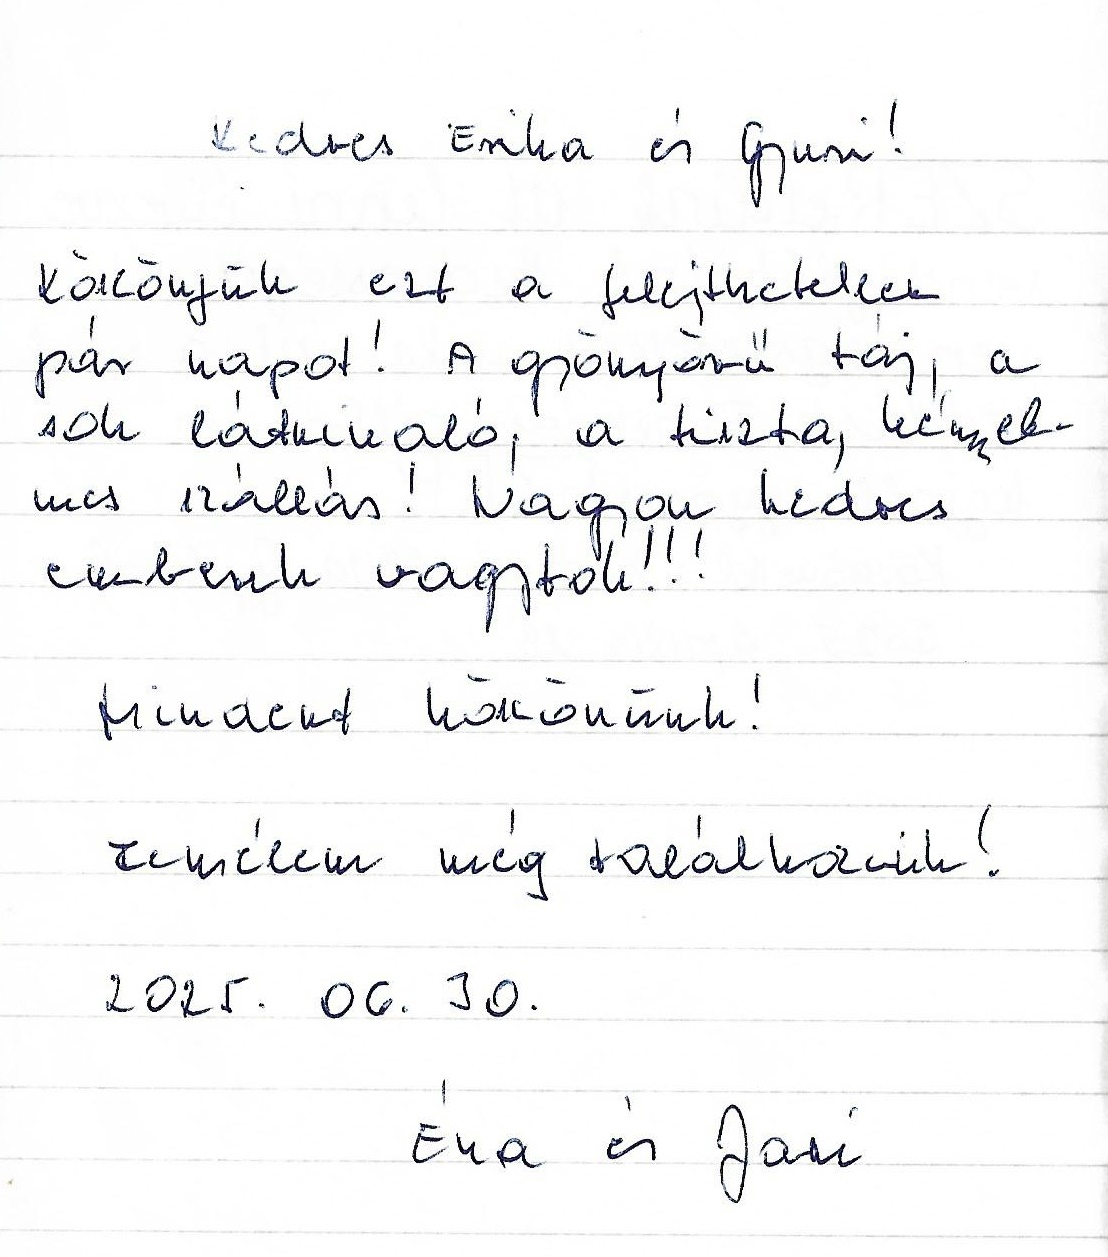 Kedves Erika és Gyuri!
Köszönjük ezt a felejthetetlen
pár napot! A gyönyörű táj, a
sok látnivaló, a tiszta, kényel-
mes szállás! Nagyon kedves
emberek vagytok!!!
Mindent köszönünk!
Remélem még találkozunk!
2025. 06. 30.
Éva és Jani